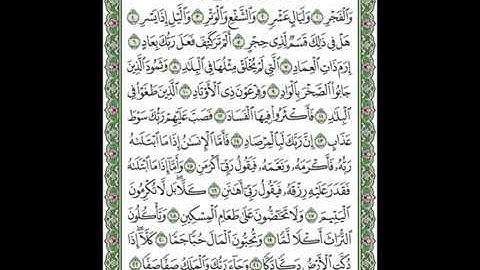 وَالْفَجْرِ ١ وَلَيَالٍ عَشْرٍ ٢ وَالشَّفْعِ وَالْوَتْرِ ٣ وَالَّيْلِ إِذَا يَسْرِ ٤
هَلْ فِي ذَٰلِكَ قَسَمٌ لِّذِي حِجْرٍ ٥ أَلَمْ تَرَ كَيْفَ فَعَلَ رَبُّكَ بِعَادٍ ٦
إِرَمَ ذَاتِ الْعِمَادِ ٧ الَّتِي لَمْ يُخْلَقْ مِثْلُهَا فِي الْبِلَٰدِ ٨ وَثَمُودَ الَّذِينَ
جَابُوا الصَّخْرَ بِالْوَادِ ٩ وَفِرْعَوْنَ ذِي الْأَوْتَادِ ١٠ الَّذِينَ طَغَوْا فِي
الْبِلَٰدِ ١١ فَأَكْثَرُوا فِيهَا الْفَسَادَ ١٢ فَصَبَّ عَلَيْهِمْ رَبُّكَ سَوْطَ
عَذَابٍ ١٣ إِنَّ رَبَّكَ لَبِالْمِرْصَادِ ١٤ فَأَمَّا الْإِنسَٰنُ إِذَا مَا ابْتَلَىٰهُ
رَبُّهُ فَأَكْرَمَهُ وَنَعَّمَهُ فَيَقُولُ رَبِّي أَكْرَمَنِ ١٥ وَأَمَّا إِذَا مَا ابْتَلَىٰهُ
فَقَدَرَ عَلَيْهِ رِزْقَهُ فَيَقُولُ رَبِّي أَهَٰنَنِ ١٦ كَلَّا بَل لَّا تُكْرِمُونَ
الْيَتِيمَ ١٧ وَلَا تَحَٰضُّونَ عَلَىٰ طَعَامِ الْمِسْكِينِ ١٨ وَتَأْكُلُونَ
التُّرَاثَ أَكْلًا لَّمًّا ١٩ وَتُحِبُّونَ الْمَالَ حُبًّا جَمًّا ٢٠ كَلَّا إِذَا
دُكَّتِ الْأَرْضُ دَكًّا دَكًّا ٢١ وَجَاءَ رَبُّكَ وَالْمَلَكُ صَفًّا صَفًّا ٢٢